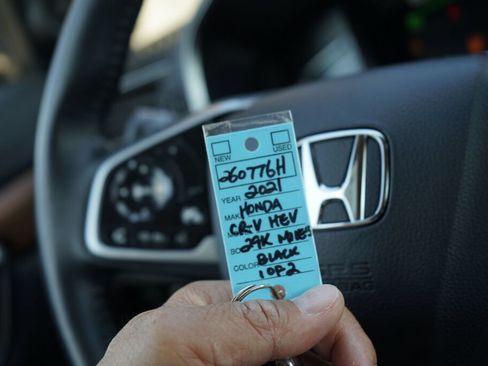 NEW USED
260776H
YEAR 2021
MAK HONDA
CR-V HEV
29K MILES
COLOR BLACK
1 OF 2